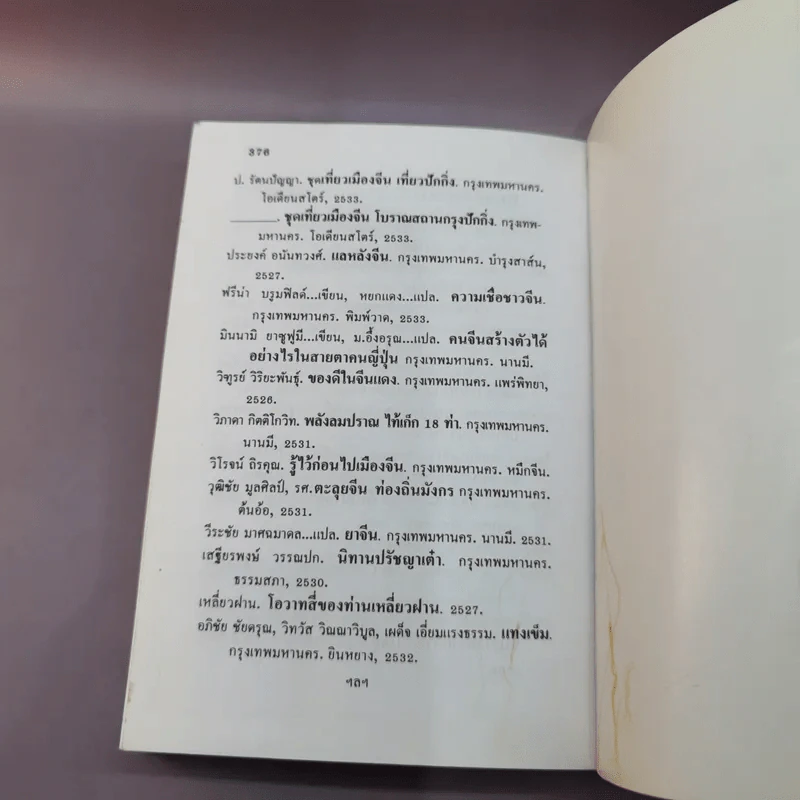 376
ป. รัตนปัญญา. ชุดเที่ยวเมืองจีน เที่ยวปักกิ่ง. กรุงเทพมหานคร.
โอเดียนสโตร์, 2533.
______. ชุดเที่ยวเมืองจีน โบราณสถานกรุงปักกิ่ง. กรุงเทพ-
มหานคร. โอเดียนสโตร์, 2533.
ประยงค์ อนันทวงศ์. แลหลังจีน. กรุงเทพมหานคร. บำรุงสาส์น,
2527.
ฟรีน่า บรูมฟิลด์...เขียน, หยกแดง...แปล. ความเชื่อชาวจีน.
กรุงเทพมหานคร. พิมพ์วาด, 2533.
มินนามิ ยาซูฟูมี...เขียน, ม.อึ้งอรุณ...แปล. คนจีนสร้างตัวได้
อย่างไรในสายตาคนญี่ปุ่น กรุงเทพมหานคร. นานมี.
วิฑูรย์ วิริยะพันธุ์. ของดีในจีนแดง. กรุงเทพมหานคร. แพร่พิทยา,
2526.
วิภาดา กิตติโกวิท. พลังลมปราณ ไท้เก็ก 18 ท่า. กรุงเทพมหานคร.
นานมี, 2531.
วิโรจน์ ถิรคุณ. รู้ไว้ก่อนไปเมืองจีน. กรุงเทพมหานคร. หมึกจีน.
วุฒิชัย มูลศิลป์, รศ.ตะลุยจีน ท่องถิ่นมังกร กรุงเทพมหานคร.
ต้นอ้อ, 2531.
วีระชัย มาศฉมาดล...แปล. ยาจีน. กรุงเทพมหานคร. นานมี. 2531.
เสฐียรพงษ์ วรรณปก. นิทานปรัชญาเต๋า. กรุงเทพมหานคร.
ธรรมสภา, 2530.
เหลี่ยวฝาน. โอวาทสี่ของท่านเหลี่ยวฝาน. 2527.
อภิชัย ชัยดรุณ, วิทวัส วัณณาวิบูล, เผด็จ เอี่ยมแรงธรรม. แท่งเข็ม.
กรุงเทพมหานคร. ยินหยาง, 2532.
ฯลฯ